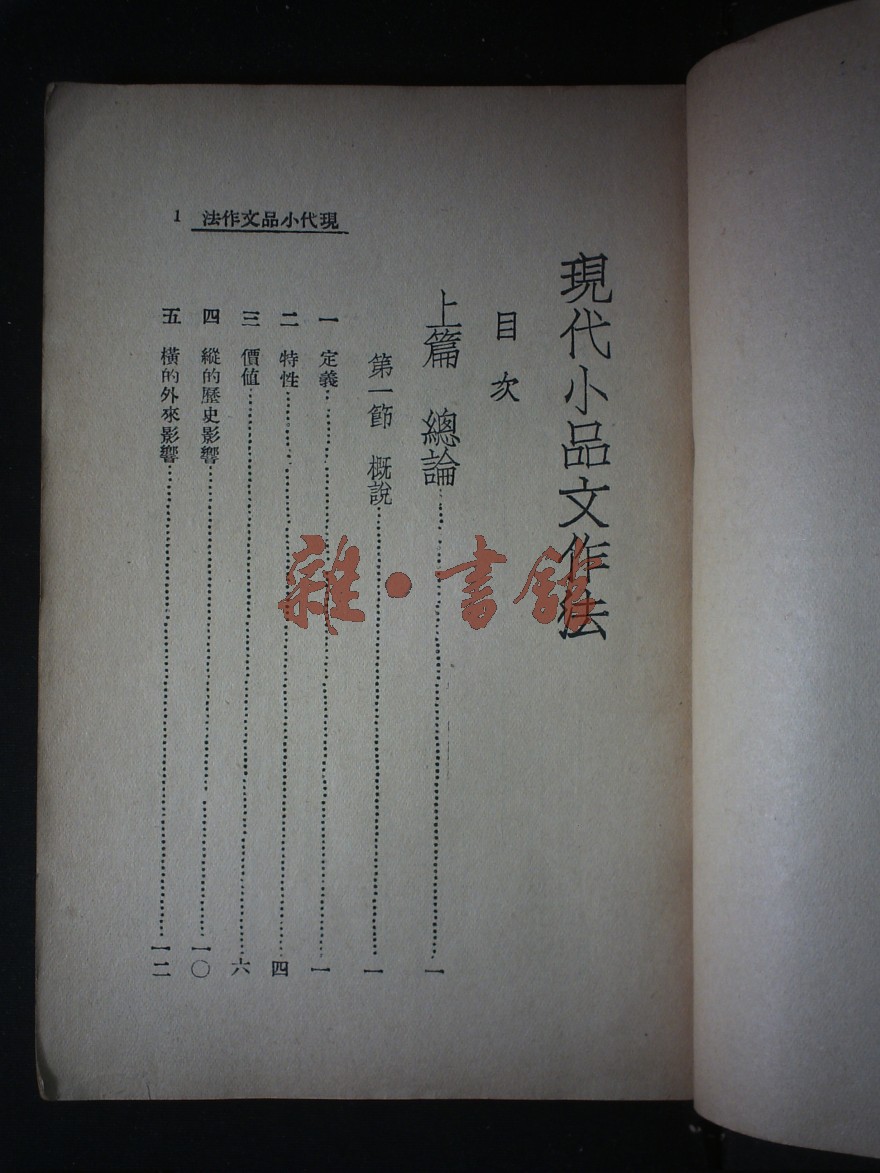 現代小品文作法
目次
上篇 總論……一
第一節 概說……一
一 定義……一
二 特性……四
三 價值……六
四 縱的歷史影響……一〇
五 橫的外來影響……一二
法作文品小代現 1
雜·書館